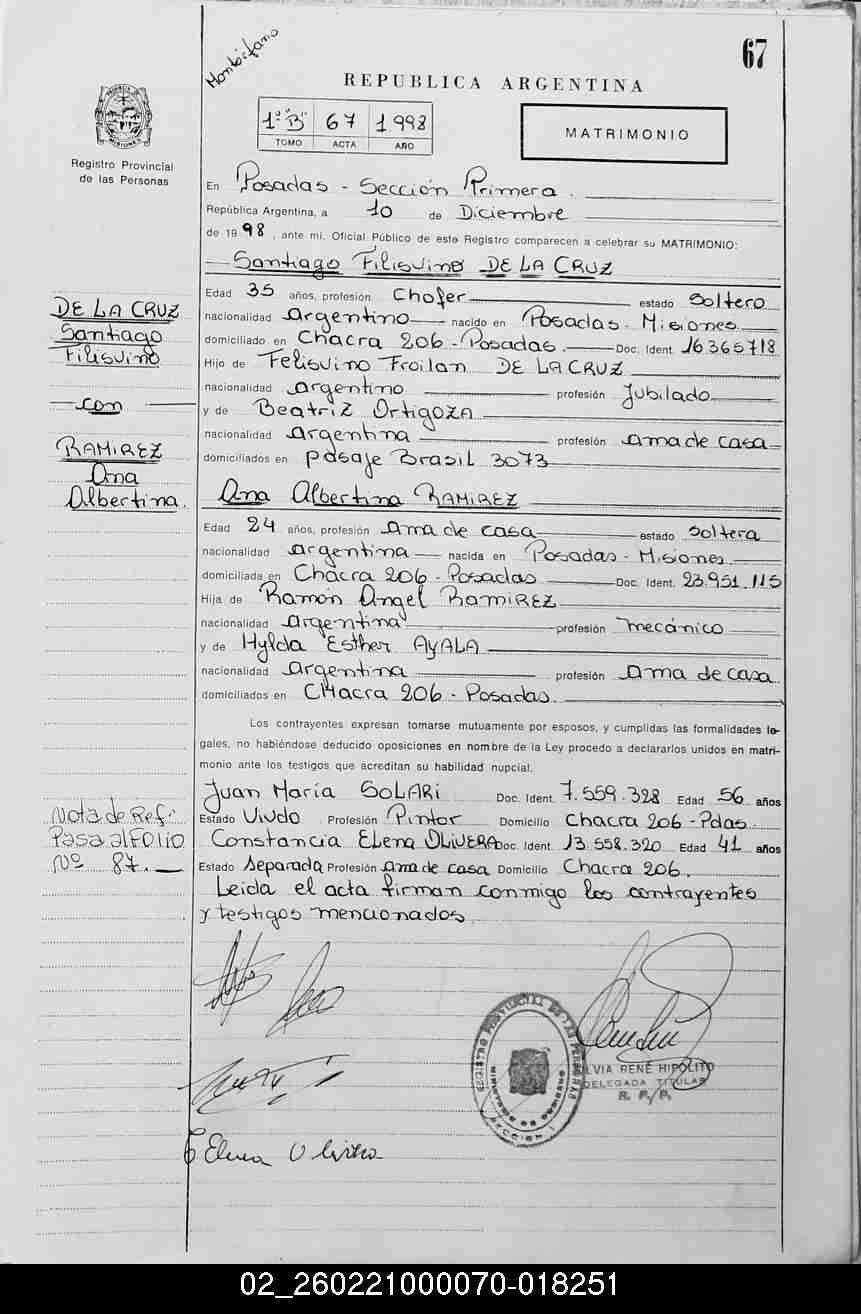 67
Montiefano
REPUBLICA ARGENTINA
1º "B" 67 1.998
TOMO ACTA AÑO
MATRIMONIO
Registro Provincial
de las Personas
En Posadas - Sección Primera.
República Argentina, a 10 de Diciembre
de 1998, ante mi, Oficial Público de este Registro comparecen a celebrar su MATRIMONIO:
Santiago Filisvino DE LA CRUZ
DE LA CRUZ
Santiago
Filisvino
con
RAMIREZ
Ana
Albertina.
Edad 35 años, profesión Chofer estado Soltero
nacionalidad argentino nacido en Posadas - Misiones
domiciliado en Chacra 206 - Posadas. Doc. Ident. 16.365.718
Hijo de Felisvino Froilan DE LA CRUZ
nacionalidad argentino profesión Jubilado
y de Beatriz Ortigoza
nacionalidad argentina profesión ama de casa
domiciliados en pasaje Brasil 3073
Ana Albertina RAMIREZ
Edad 24 años, profesión ama de casa estado soltera
nacionalidad argentina nacida en Posadas - Misiones.
domiciliada en Chacra 206 - Posadas Doc. Ident. 23.951.115
Hija de Ramón Angel RAMIREZ
nacionalidad argentina profesión mecánico
y de Hylda Esther AYALA
nacionalidad argentina profesión ama de casa
domiciliados en CHacra 206 - Posadas.
Los contrayentes expresan tomarse mutuamente por esposos, y cumplidas las formalidades le-
gales, no habiéndose deducido oposiciones en nombre de la Ley procedo a declararlos unidos en matri-
monio ante los testigos que acreditan su habilidad nupcial.
Juan María SOLARI Doc. Ident. 7.559.328 Edad 56 años
Estado Viudo Profesión Pintor Domicilio Chacra 206 - Pdas.
Constancia Elena OLIVERA Doc. Ident. 13.558.320 Edad 41 años
Estado Separada Profesión ama de casa Domicilio Chacra 206.
Leida el acta firman conmigo los contrayentes
y testigos mencionados.
Nota de Ref:
Pasa al FOLIO
Nº 87.
REGISTRO PROVINCIAL DE LAS PERSONAS
MINISTERIO DE GOBIERNO
SECCION I
SILVIA RENÉ HIPOLITO
DELEGADA TITULAR
R. P. P.
C Elena Olivera
02_260221000070-018251